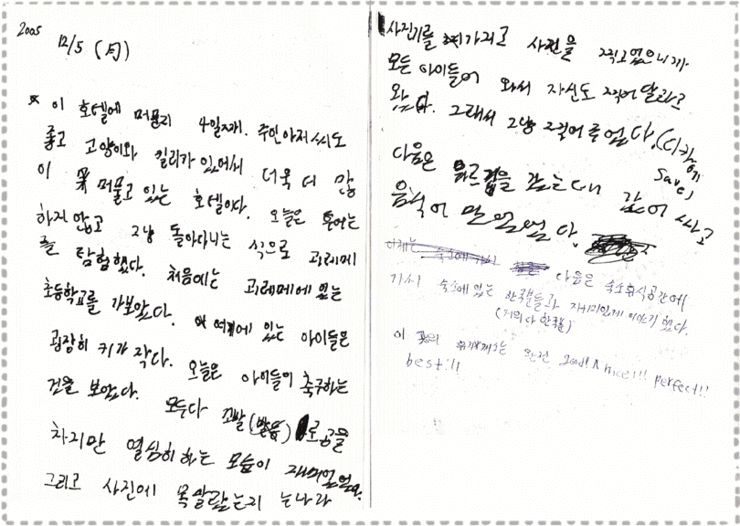 2005
12/5 (月)
* 이 호텔에 머물지 4일째. 주인아저씨도
좋고 고양이와 킬리가 있어서 더욱 더 많
이 머물고 있는 호텔이다. 오늘은 투어는
하지않고 그냥 돌아다니는 식으로 괴레메
를 탐험했다. 처음에는 괴레메에 있는
초등학교를 가보았다. 여기에 있는 아이들은
굉장히 키가 작다. 오늘은 아이들이 축구하는
것을 보았다. 모두다 (발음) 로 공을
차지만 열심히 하는 모습이 재미있었다.
그리고 사진에 목말랐는지 는나라
사진기를 가지고 사진을 찍고 있으니까
모든 아이들이 와서 자신도 찍어 달라고
왔다. 그래서 그냥 찍어주었다. (디카에
save)
다음은 을 갔는데 값이 싸고
음식이 었다.
어제는 숙소에 다음은 숙소휴식공간에
가서 숙소에 있는 한국분들과 재미있게 이야기했다.
(거의다 한국분)
이 는 완전 good! nice!!! perfect!!
best!!!